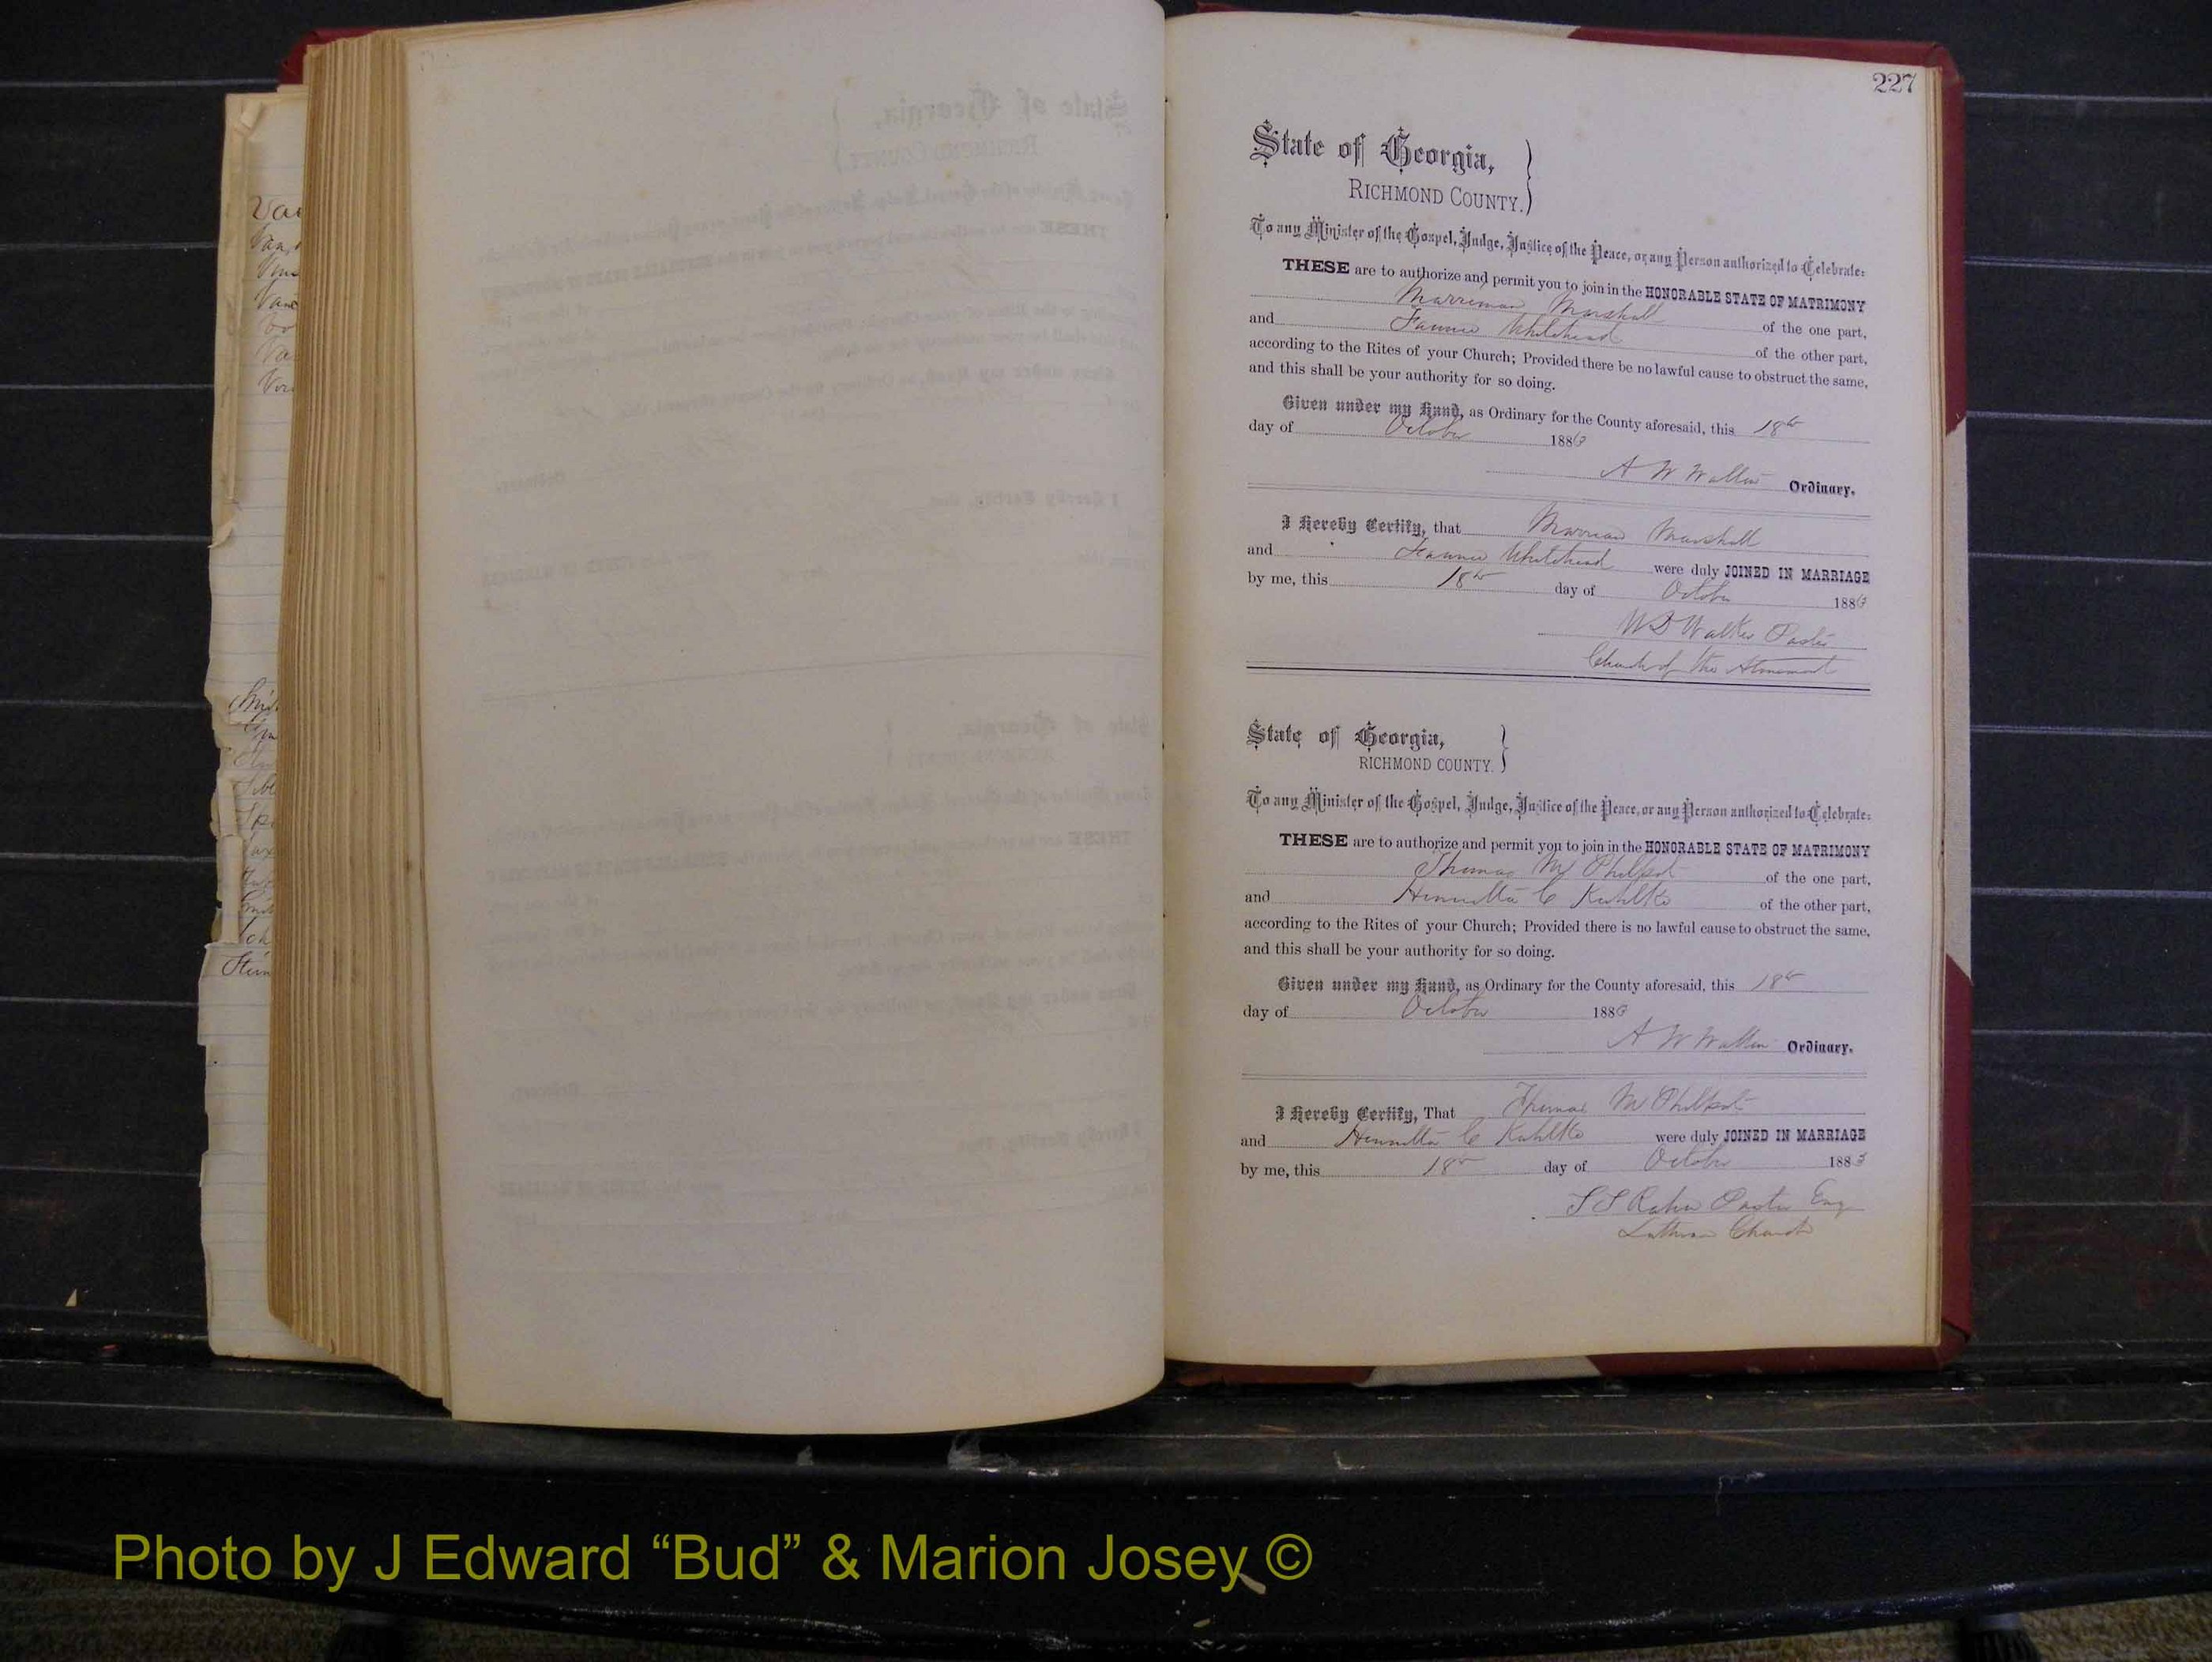 227
State of Georgia,
RICHMOND COUNTY.
To any Minister of the Gospel, Judge, Justice of the Peace, or any Person authorized to Celebrate:
THESE are to authorize and permit you to join in the HONORABLE STATE OF MATRIMONY
Marriman Marshall of the one part,
and Fannie Whitehead of the other part,
according to the Rites of your Church; Provided there be no lawful cause to obstruct the same,
and this shall be your authority for so doing.
Given under my Hand, as Ordinary for the County aforesaid, this 18th
day of October 1883
A W Walton Ordinary.
I Hereby Certify, that Marshall
and Fannie Whitehead were duly JOINED IN MARRIAGE
by me, this 18th day of October 1883
W D Walker Pastor
Church of the Atonement
State of Georgia,
RICHMOND COUNTY.
To any Minister of the Gospel, Judge, Justice of the Peace, or any Person authorized to Celebrate:
THESE are to authorize and permit you to join in the HONORABLE STATE OF MATRIMONY
Thomas M Philpot of the one part,
and Henrietta C Kuhlke of the other part,
according to the Rites of your Church; Provided there is no lawful cause to obstruct the same,
and this shall be your authority for so doing.
Given under my Hand, as Ordinary for the County aforesaid, this 18th
day of October 1883
A W Walton Ordinary.
I Hereby Certify, That Thomas M Philpot
and Henrietta C Kuhlke were duly JOINED IN MARRIAGE
by me, this 18th day of October 1883
Pastor Eng
Lutheran Church
Photo by J Edward “Bud” & Marion Josey ©